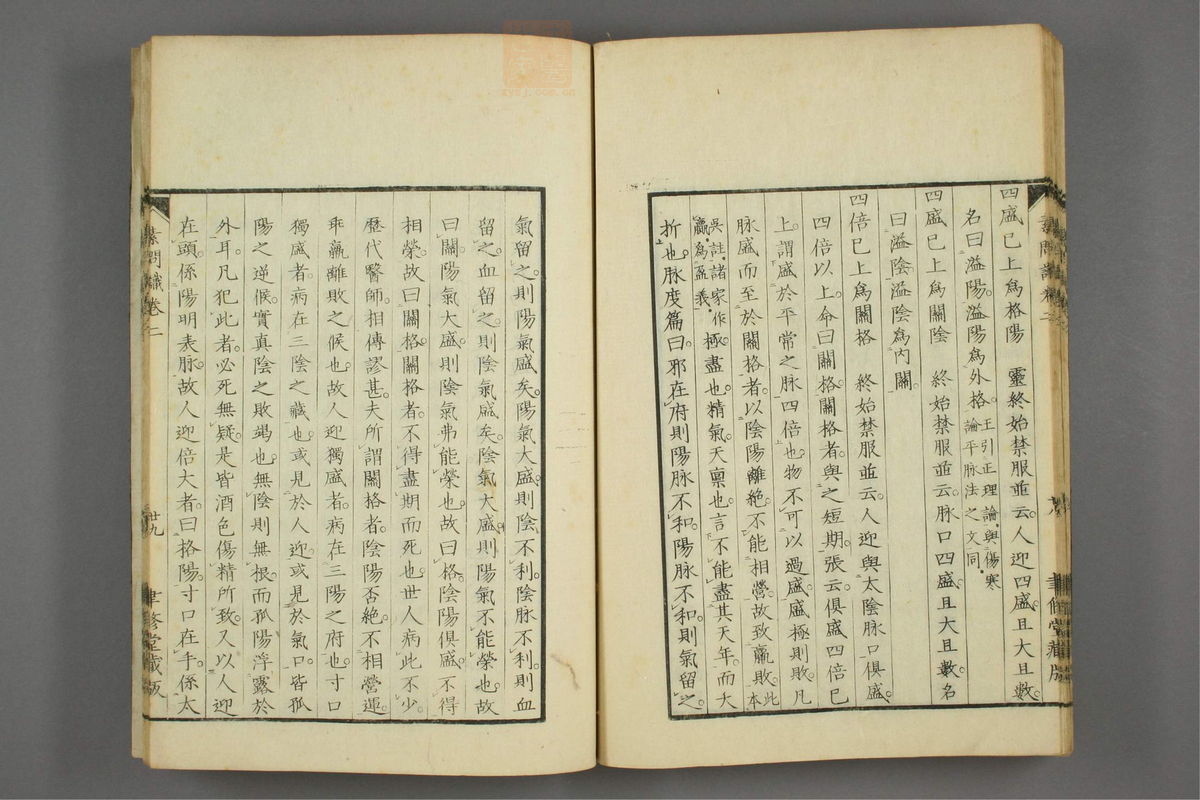 四盛已上爲格陽　靈終始禁服並云人迎四盛且大且數
名曰溢陽溢陽爲外格王引正理論與傷寒論平脉法之文同
四盛已上爲關陰　終始禁服並云脉口四盛且大且數名
曰溢陰溢陰爲內關
四倍已上爲關格　終始禁服並云人迎與太陰脉口俱盛
四倍以上命曰關格關格者與之短期張云俱盛四倍已
上謂盛於平常之脉四倍也物不可以過盛盛極則敗凡
脉盛而至於關格者以陰陽離絶不能相營故致羸敗此本
吳註諸家作羸爲盈義極盡也精氣天禀也言不能盡其天年而大
折也脉度篇曰邪在府則陽脉不和陽脉不和則氣留之
氣留之則陽氣盛矣陽氣大盛則陰不利陰脉不利則血
留之血留之則陰氣盛矣陰氣大盛則陽氣不能榮也故
曰關陽氣大盛則陰氣弗能榮也故曰格陰陽俱盛不得
相榮故曰關格關格者不得盡期而死也世人病此不少
歷代醫師相傳謬甚夫所謂關格者陰陽否絶不相營運
乖羸離敗之候也故人迎獨盛者病在三陽之府也寸口
獨盛者病在三陰之藏也或見於人迎或見於氣口皆孤
陽之逆候實真陰之敗竭也無陰則無根而孤陽浮露於
外耳凡犯此者必死無疑是皆酒色傷精所致又以人迎
在頭係陽明表脉故人迎倍大者曰格陽寸口在手係太
素問識卷二
廿九
聿修堂藏版